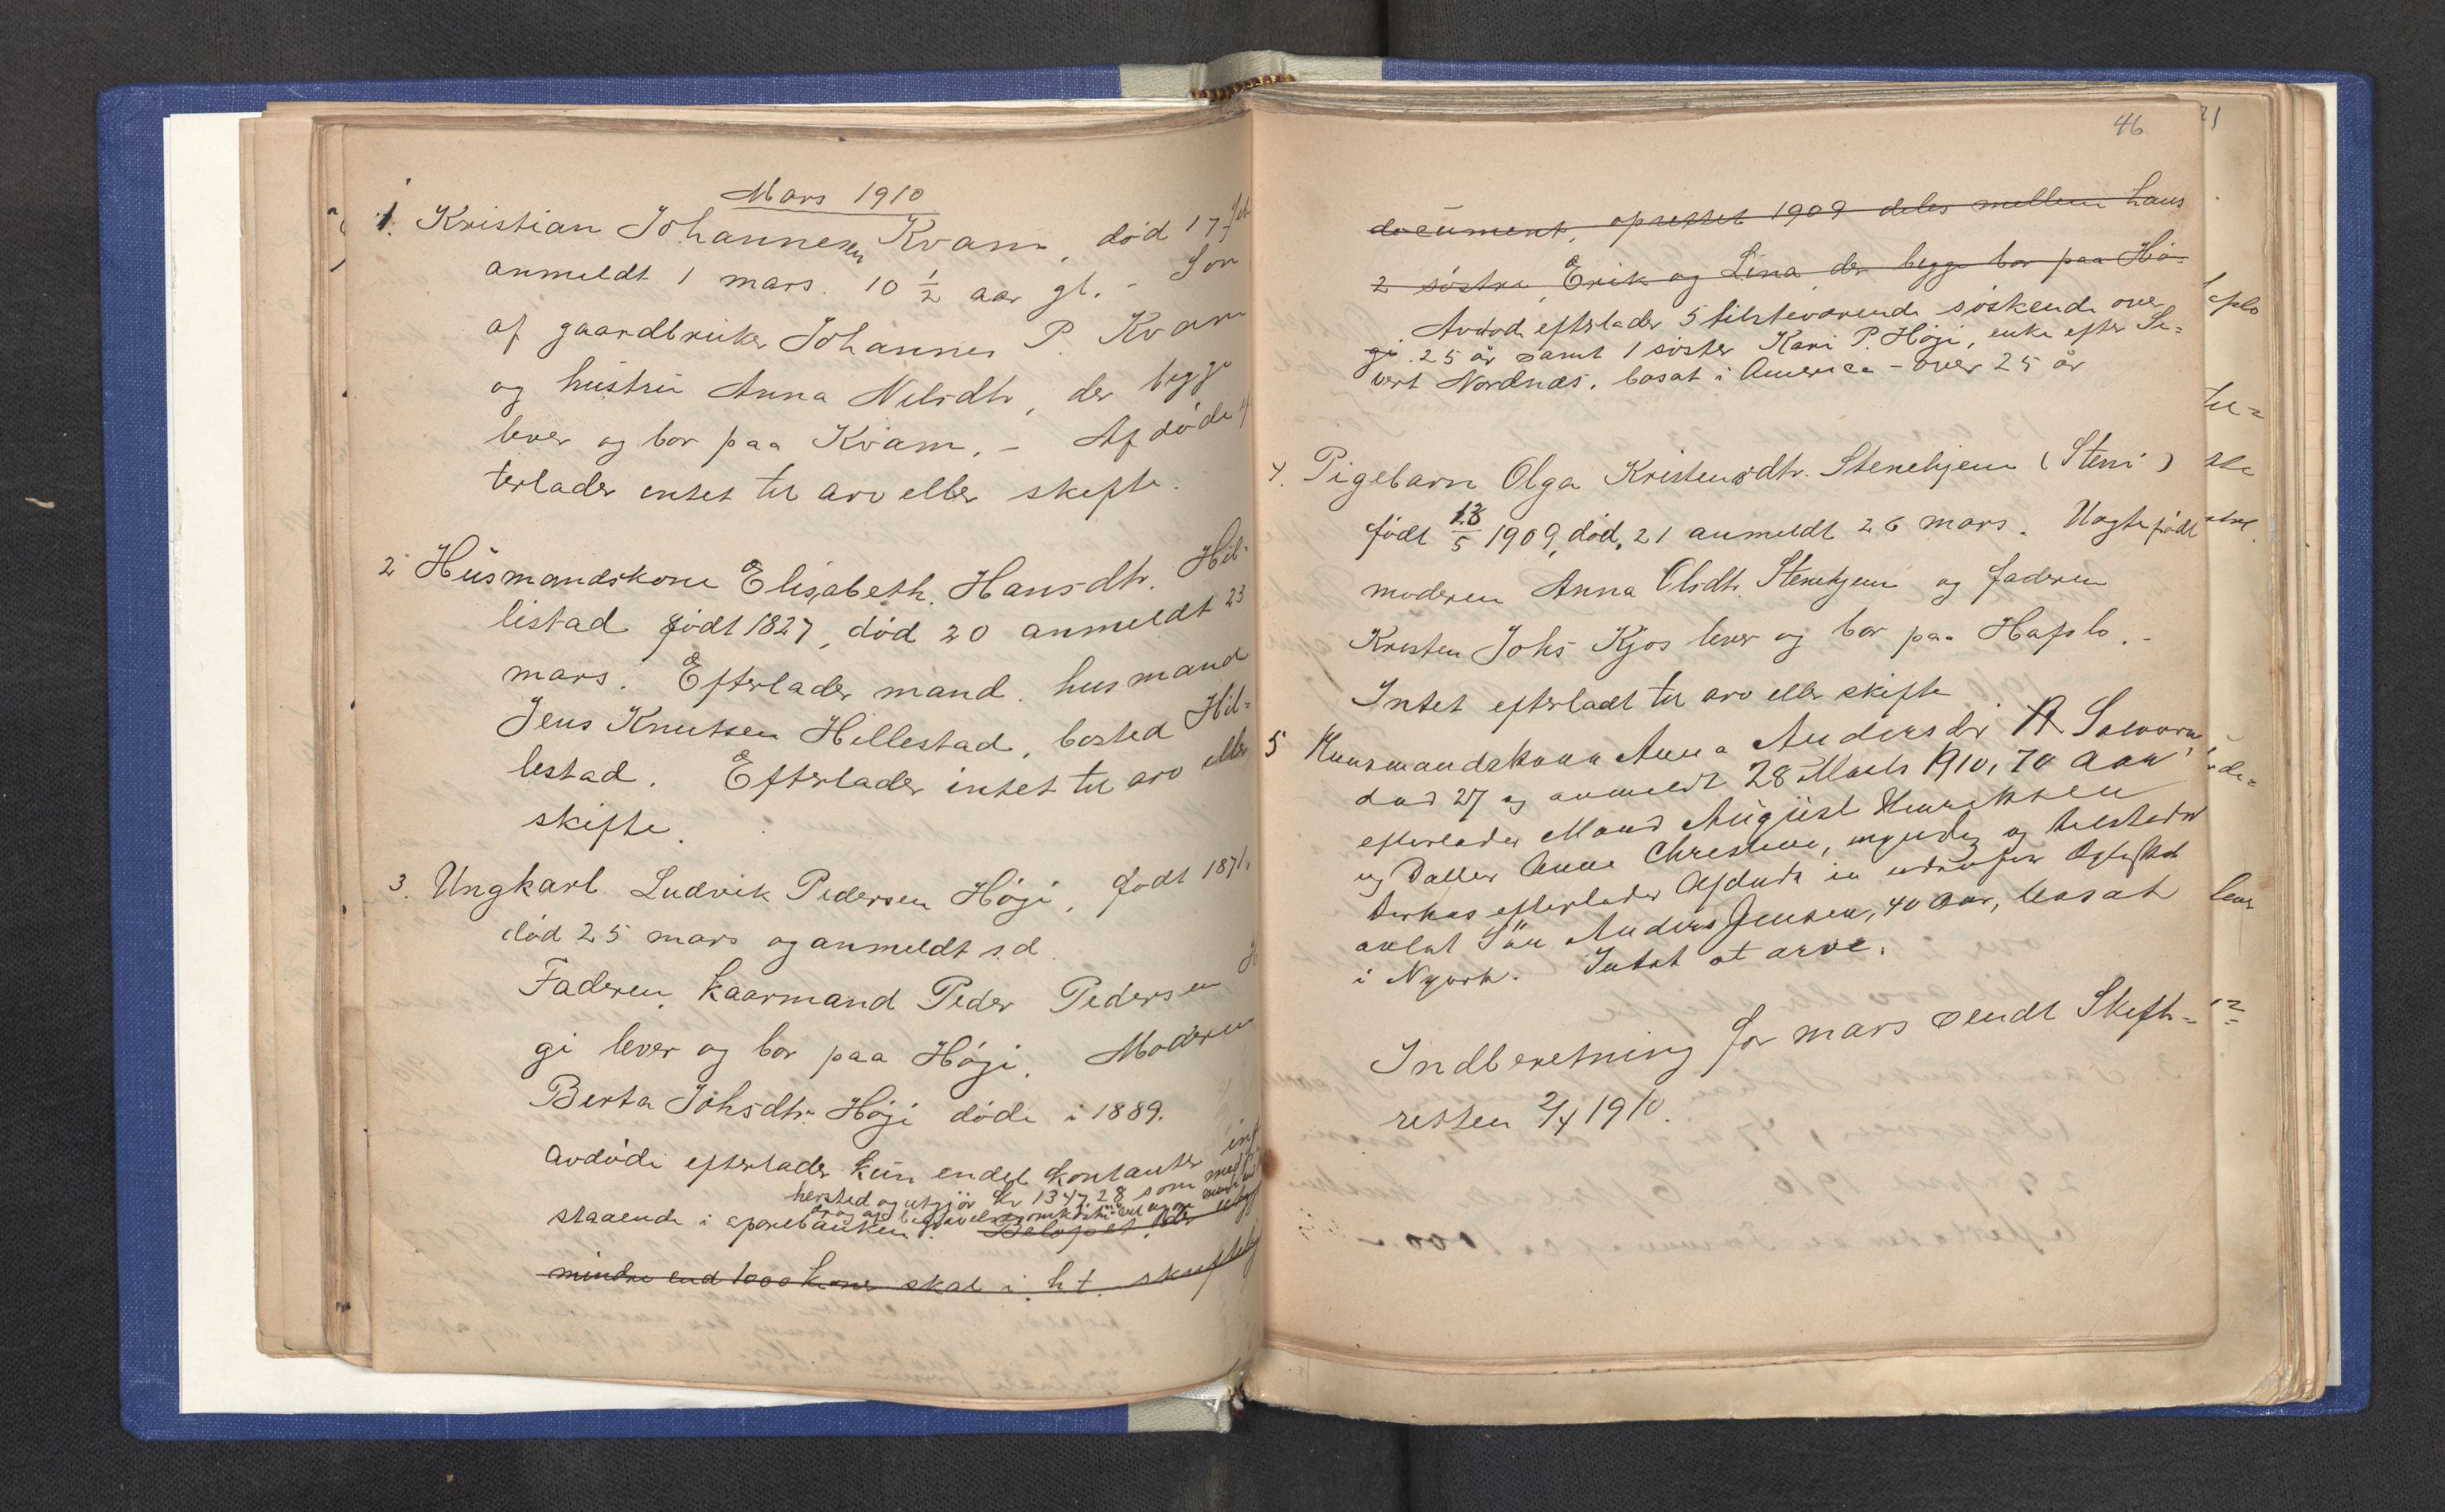 Mars 1910
1. Kristian Johannesen Kvam, död 17 feb
anmeldt 1 mars. 10 1/2 aar gl. - Son
af gaardbruker Johannes P. Kvam
og hustru Anna Nilsdtr, der begge
lever og bor paa Kvam. - Afdöde ef
terlader intet til arv eller skifte.
2 Husmandskone Elisabeth Hansdtr. Hil-
listad födt 1827, död 20 anmeldt 23
mars. Efterlader mand. husmand
Jens Knutsen Hillestad, bosted Hil=
lestad. Efterlader intet til arv eller
skifte.
3. Ungkarl Ludvik Pedersen Höji, födt 1871,
död 25 mars og anmeldt s.d.
Faderen kaarmand Peder Pedersen H
gi lever og bor paa Höji. Moderen
Berta Johsdtr Höji döde i 1889.
Avdöde efterlader kun endel kontanter
hersted og utgjör kr 1347,28 som med
staaende i sparebanken. Belöpet
mindre end 1000 kroner skal i h.t.
46
document, oprettet 1909 deles mellem hans
2 söstre, Erik og Lina der begge bor paa Hö-
gi. Avdöde efterlader 5 tilsteværende söskende over
25 år samt 1 söster Kari P. Höji, enke efter Si=
vert Nordnæs, bosat i America - over 25 år
4. Pigebarn Olga Kristensdtr. Stenehjem (Steni)
födt 13/5 1909, död 21 anmeldt 26 mars. Uægtefödt
moderen Anna Olsdtr. Stenehjem og faderen
Kristen Johs Kjos lever og bor paa Hafslo. -
Intet efterladt til arv eller skifte
5 Huusmandskone Anna Andersdr Solvorn,
död 27 og anmeldt 28 Marts 1910, 70 Aar
efterlader Mand August Henriksen
og Datter Anne Christine, myndig og tilstede
Derhos efterlader Afdöde en udenfor Ægteskab
avlet Sön Anders Jensen, 40 Aar, bosat
i Nyork. Intet at arve.
Indberetning for mars sendt Skifte=
retten 2/4 1910.